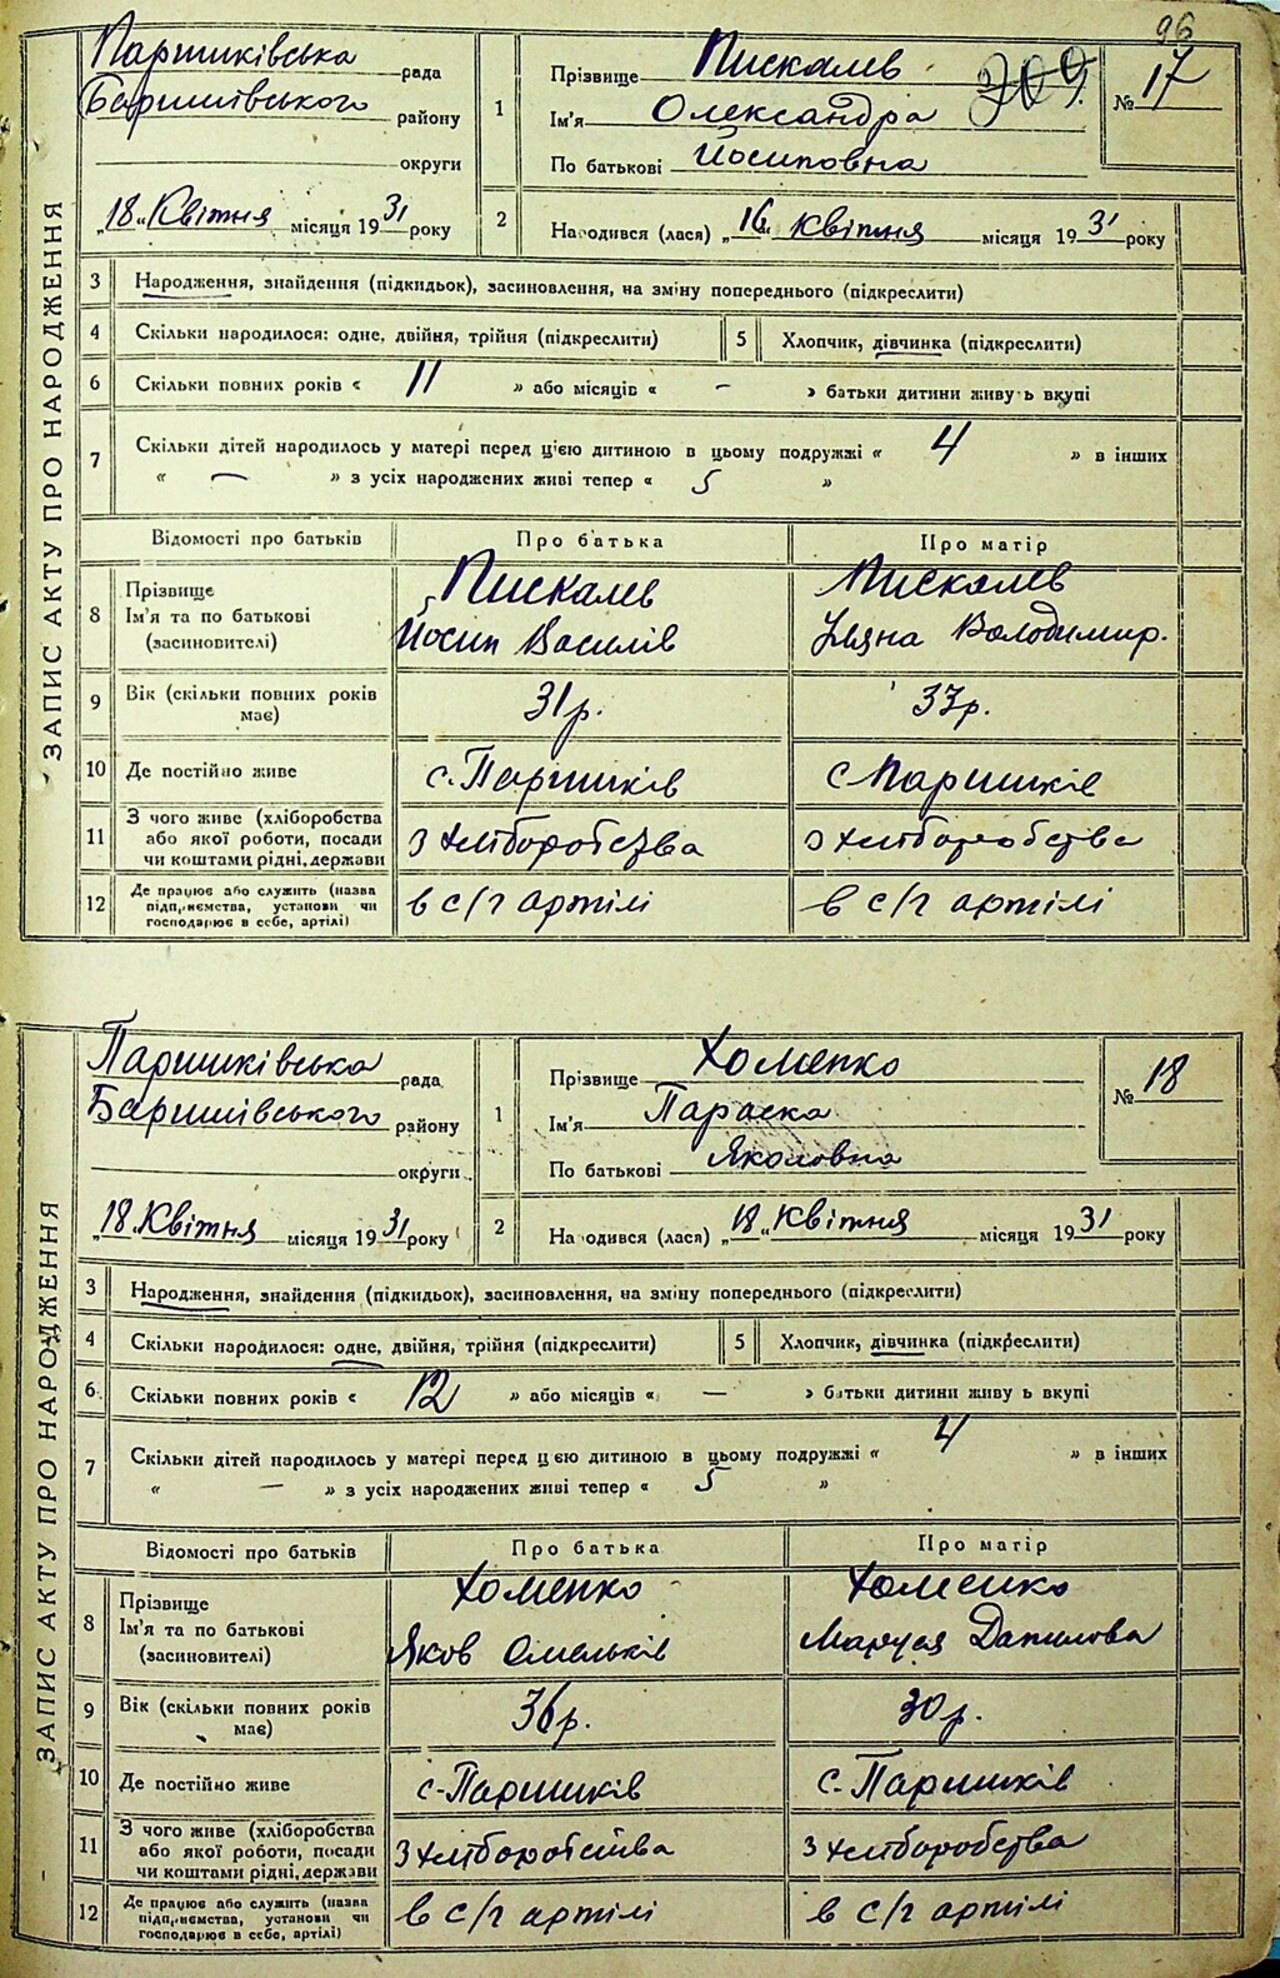 96
Паришківська рада
Баришівського району
округи
„18“ Квітня місяця 1931 року
1
Прізвище Пискалев
Ім'я Олександра
По батькові Йосиповна
№ 17
2
Народився (лася) „16“ Квітня місяця 1931 року
ЗАПИС АКТУ ПРО НАРОДЖЕННЯ
3 Народження, знайдення (підкидьок), засиновлення, на зміну попереднього (підкреслити)
4 Скільки народилося: одне, двійня, трійня (підкреслити) 5 Хлопчик, дівчинка (підкреслити)
6 Скільки повних років « 11 » або місяців « – » батьки дитини живуть вкупі
7 Скільки дітей народилось у матері перед цією дитиною в цьому подружжі « 4 » в інших
« — » з усіх народжених живі тепер « 5 »
Відомості про батьків Про батька Про матір
8 Прізвище Пискалев Пискалев
Ім'я та по батькові Йосип Василів Уляна Володимир.
(засиновителі)
9 Вік (скільки повних років 31 р. 33 р.
має)
10 Де постійно живе с. Паришків с Паришків
11 З чого живе (хліборобства
або якої роботи, посади з хліборобства з хліборобства
чи коштами рідні, держави
12 Де працює або служить (назва
підприємства, установи чи в с/г артілі в с/г артілі
господарює в себе, артілі)
Паришківська рада
Баришівського району
округи
„18“ Квітня місяця 1931 року
1
Прізвище Хоменко
Ім'я Параска
По батькові Якововна
№ 18
2
Народився (лася) „18“ Квітня місяця 1931 року
ЗАПИС АКТУ ПРО НАРОДЖЕННЯ
3 Народження, знайдення (підкидьок), засиновлення, на зміну попереднього (підкреслити)
4 Скільки народилося: одне, двійня, трійня (підкреслити) 5 Хлопчик, дівчинка (підкреслити)
6 Скільки повних років « 12 » або місяців « — » батьки дитини живуть вкупі
7 Скільки дітей народилось у матері перед цією дитиною в цьому подружжі « 4 » в інших
« — » з усіх народжених живі тепер « 5 »
Відомості про батьків Про батька Про матір
8 Прізвище Хоменко Хоменко
Ім'я та по батькові Яков Омельків Маруся Данилова
(засиновителі)
9 Вік (скільки повних років 36 р. 30 р.
має)
10 Де постійно живе с. Паришків с. Паришків
11 З чого живе (хліборобства
або якої роботи, посади з хліборобства з хліборобства
чи коштами рідні, держави
12 Де працює або служить (назва
підприємства, установи чи в с/г артілі в с/г артілі
господарює в себе, артілі)